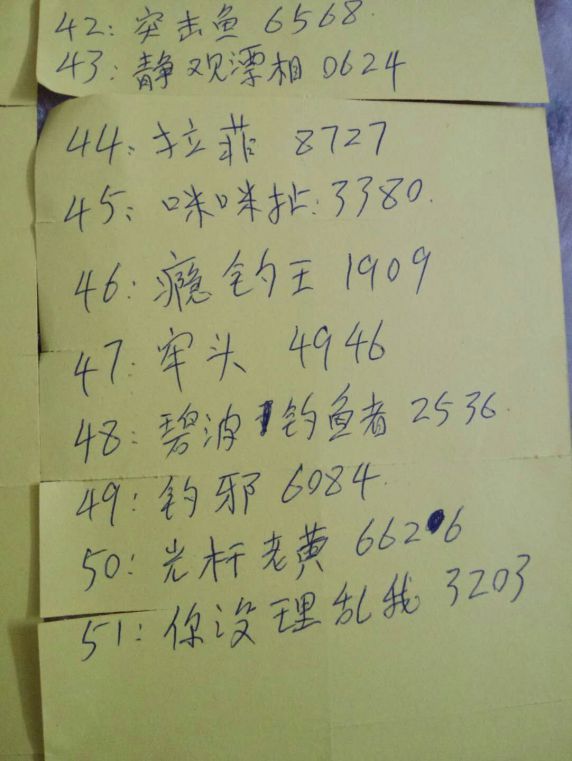 42: 突击鱼 6568.
43: 静观漂相 0624
44: 拉菲 8727
45: 咪咪扯: 3380.
46: 瘾钓王 1909
47: 牢头 4946
48: 碧波钓鱼者 2536.
49: 钓邪 6084.
50: 光杆老黄 6626
51: 你没理乱我 3203